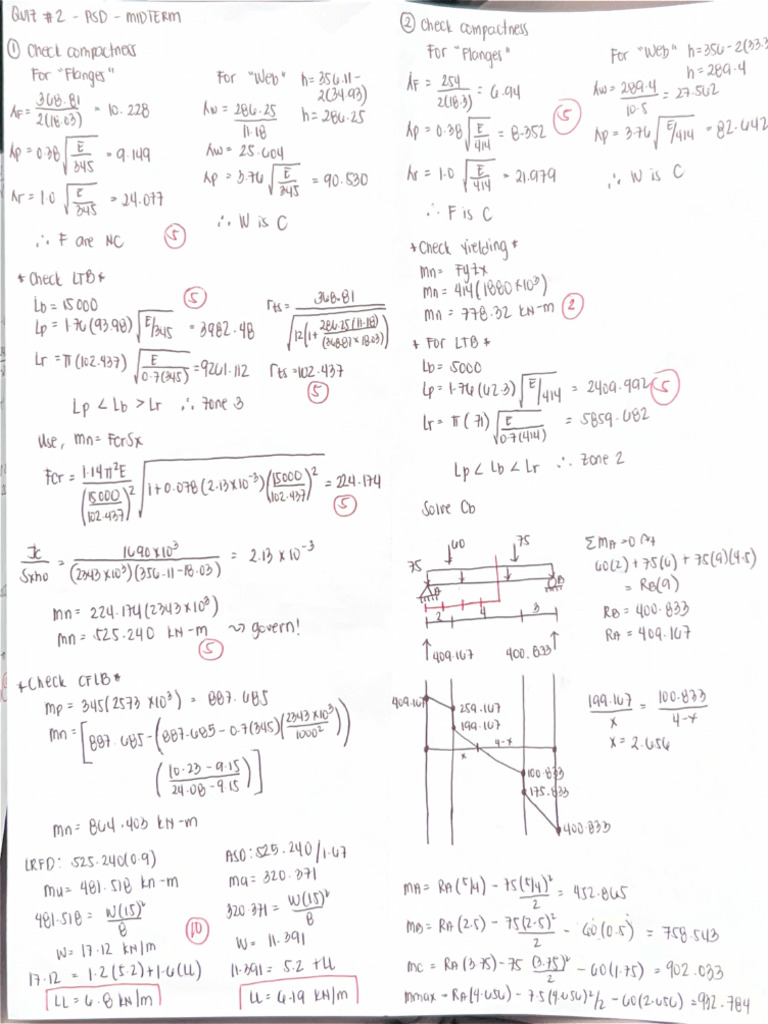 QUIZ #2 - PSD - MIDTERM
① Check compactness
For "Flanges"
λF = 368.81 / 2(18.03) = 10.228
λp = 0.38 √(E/345) = 9.149
λr = 1.0 √(E/345) = 24.077
∴ F are NC
⑤
For "Web" h = 356.11 - 2(34.93)
h = 286.25
λw = 286.25 / 11.18
λw = 25.604
λp = 3.76 √(E/345) = 90.530
∴ W is C
* Check LTB *
⑤
Lb = 15000
Lp = 1.76(93.98) √(E/345) = 3982.48
Lr = π(102.437) √(E/0.7(345)) = 9261.112
rts = 368.81 / √(12(1 + 286.25(11.18)/(368.81 × 18.03)))
rts = 102.437
⑤
Lp < Lb > Lr ∴ zone 3
Use, Mn = FcrSx
Fcr = 1.14π²E / (15000/102.437)² √(1 + 0.078(2.13×10⁻³)(15000/102.437)²) = 224.174
⑤
Jc / Sxho = 1690×10³ / (2343×10³)(356.11-18.03) = 2.13×10⁻³
Mn = 224.174(2343×10³)
Mn = 525.240 kN-m ↝ govern!
⑤
* Check CFLB *
Mp = 345(2573×10³) = 887.685
Mn = [887.685 - (887.685 - 0.7(345)(2343×10³/1000²))
(10.23 - 9.15 / 24.08 - 9.15)]
Mn = 864.403 kN-m
LRFD: 525.240(0.9)
Mu = 481.518 kn-m
481.518 = W(15)² / 8
W = 17.12 kN/m
17.12 = 1.2(5.2) + 1.6(LL)
LL = 6.8 kN/m
⑩
ASD: 525.240/1.67
Ma = 320.371
320.371 = W(15)² / 8
W = 11.391
11.391 = 5.2 + LL
LL = 6.19 kN/m
② Check compactness
For "Flanges"
λF = 254 / 2(18.3) = 6.94
⑤
λp = 0.38 √(E/414) = 8.352
λr = 1.0 √(E/414) = 21.979
∴ F is C
For "Web" h = 356 - 2(33.3
h = 289.4
λw = 289.4 / 10.5 = 27.562
λp = 3.76 √(E/414) = 82.642
∴ W is C
* Check Yielding *
Mn = FyZx
Mn = 414(1880×10³)
Mn = 778.32 kN-m
②
* For LTB *
Lb = 5000
Lp = 1.76(62.3) √(E/414) = 2409.992
⑤
Lr = π(71) √(E/0.7(414)) = 5859.682
Lp < Lb < Lr ∴ zone 2
Solve Cb
60
75
75
A
B
2
4
3
409.167
400.833
ΣMA = 0
60(2) + 75(6) + 75(9)(4.5)
= RB(9)
RB = 400.833
RA = 409.167
409.167
259.167
199.167
x
4-x
100.833
175.833
400.833
199.167 / x = 100.833 / 4-x
x = 2.656
MA = RA(5/4) - 75(5/4)² / 2 = 452.865
MB = RA(2.5) - 75(2.5)² / 2 - 60(0.5) = 758.543
MC = RA(3.75) - 75 (3.75)² / 2 - 60(1.75) = 902.033
Mmax = RA(4.656) - 75(4.656)²/2 - 60(2.656) = 932.784